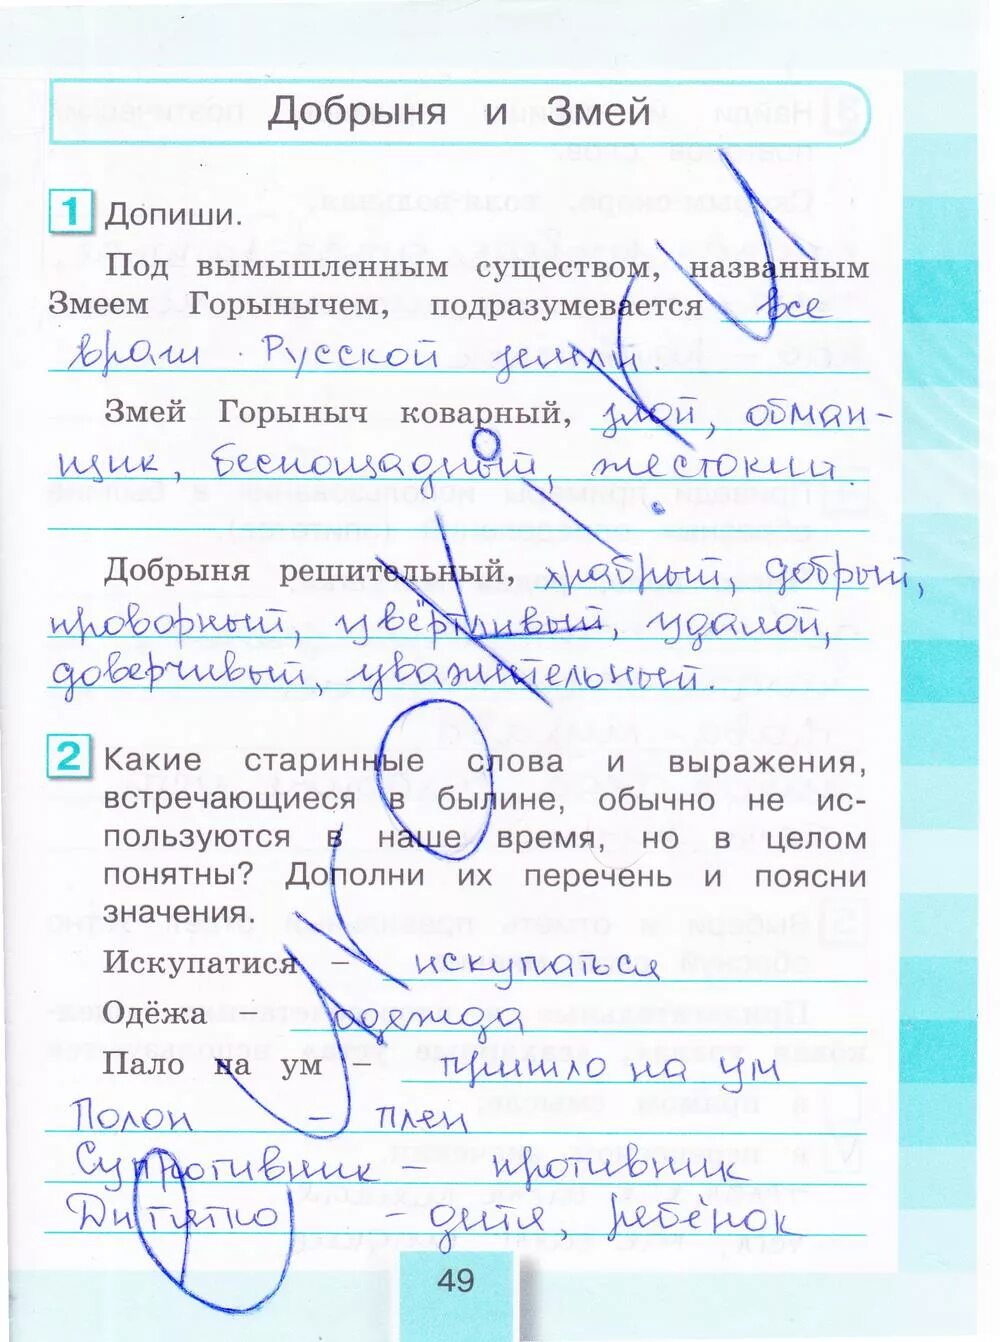 Добрыня и Змей
1 Допиши.
Под вымышленным существом, названным
Змеем Горынычем, подразумевается все
враги Русской земли.
Змей Горыныч коварный, злой, обман-
щик, беспощадный, жестокий.
Добрыня решительный, храбрый, добрый,
проворный, увёртливый, удалой,
доверчивый, уважительный.
2 Какие старинные слова и выражения,
встречающиеся в былине, обычно не ис-
пользуются в наше время, но в целом
понятны? Дополни их перечень и поясни
значения.
Искупатися – искупаться
Одёжа – одежда
Пало на ум – пришло на ум
Полон – плен
Супротивник – противник
Дитятко – дитя, ребёнок
49